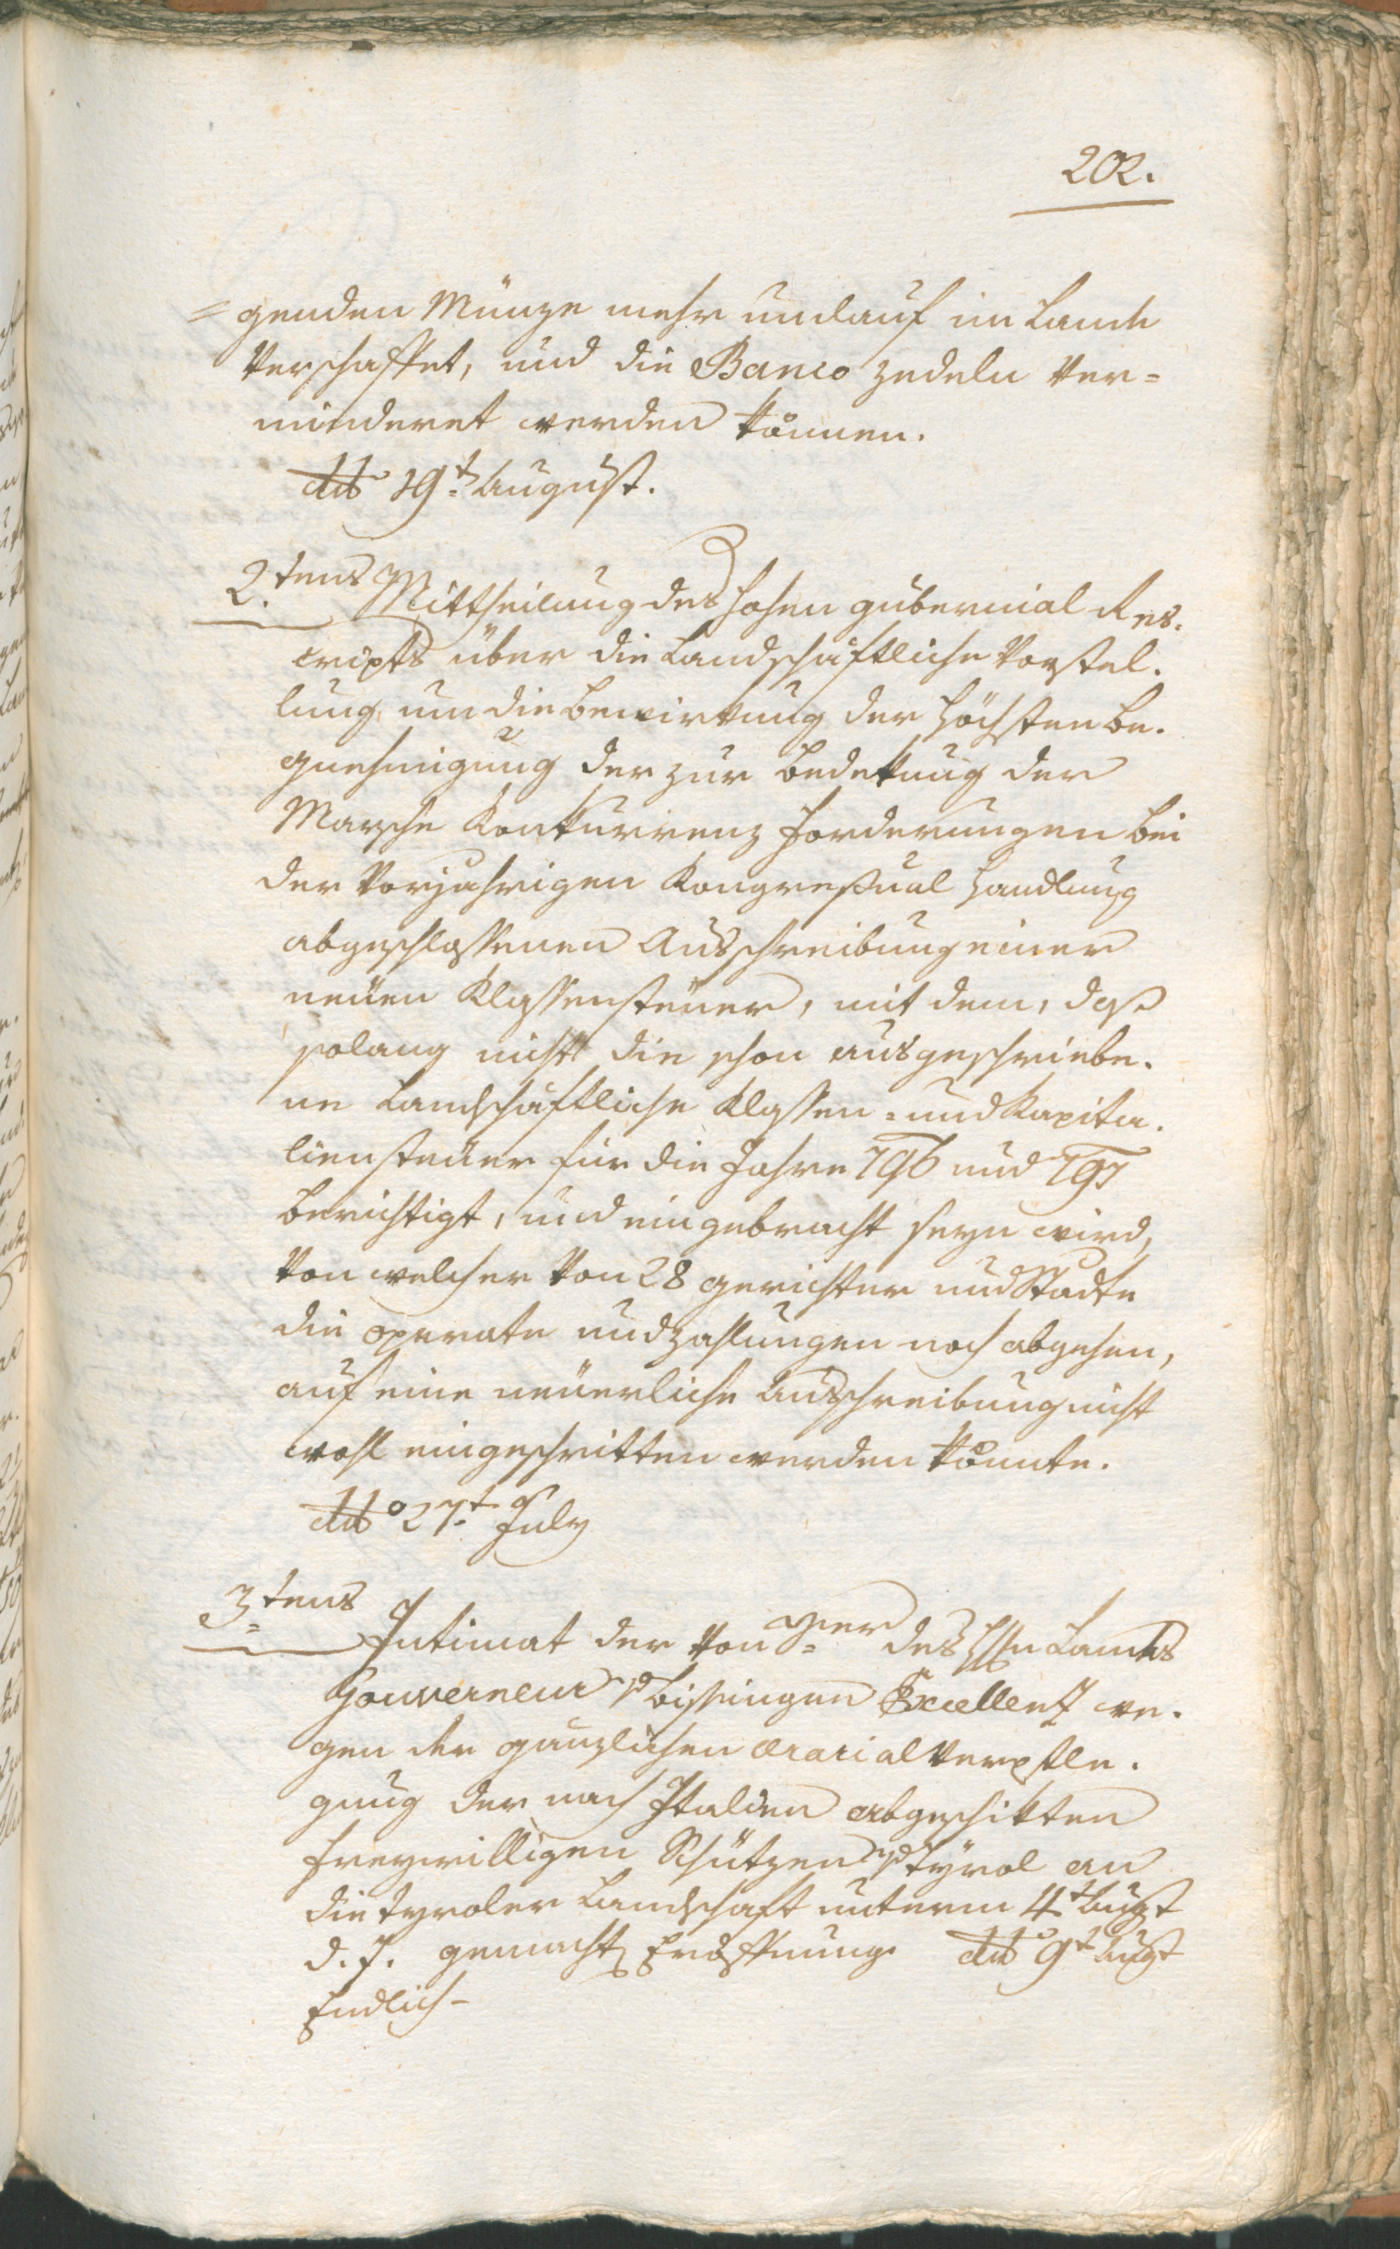 202.
=genden Münze mehr umlauf im Lande
verschaffet, und die Banco zedeln ver=
minderet werden können.
ddto 19t. August.
2.tens Mittheilung des hohen gubernial Res.
cripts über die Landschäftliche Vorstel.
lung um die bewirkung der höchsten be.
gnehmigung der zur bedekung der
Marsche Konkurrenz forderungen bei
der vorjährigen Kongreßual Handlung
abgeschlossenen Ausschreibung einer
neüen Klassensteüer, mit dem, daß
solang nicht die schon ausgeschriebe.
ne Landschäftliche Klassen= und Kapita.
liensteüer für die Jahre 796 und 797
berichtigt, und eingebracht seyn wird,
von welcher von 28 gerichter und Stadte
die operate und Zahlungen noch abgehen,
auf eine neüerliche Ausschreibung nicht
wohl eingeschritten werden könnte.
ddto 27t. July
3tens Intimat der von des Hrn Landes
Gouverneur v Bissingen Excellenz we.
gen der gänzlichen ærarial verpfle.
gung der nach Italien abgeschikten
freywilligen Schützen v Tÿrol an
die tyroler Landschaft unterm 4t Augst
d. J. gemachte Eröffnung. ddto 9t Augst
Endlich-